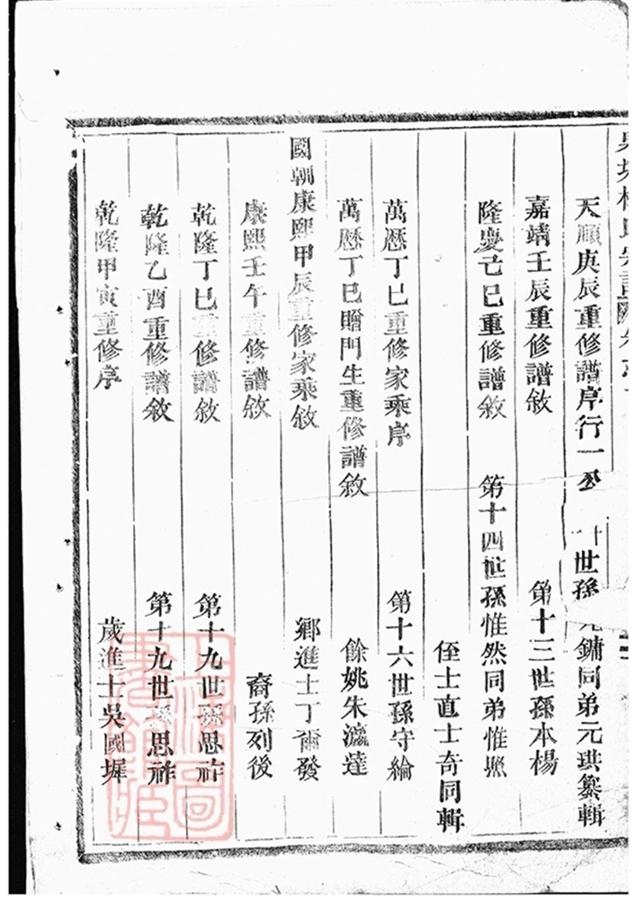 天順庚辰重修譜序行一公 十世孫元鏞同弟元珙纂輯
嘉靖壬辰重修譜敘 第十三世孫本楊
隆慶己巳重修譜敘 第十四世孫惟然同弟惟㷖
侄士直士奇同輯
萬厯丁巳重修家乘序 第十六世孫守綸
萬厯丁巳贈門生重修譜敘 餘姚朱瀛達
國朝康熙甲辰重修家乘敘 鄉進士丁爾發
康熙壬午重修譜敘 裔孫列後
乾隆丁巳重修譜敘 第十九世孫思祚
乾隆乙酉重修譜敘 第十九世孫思祚
乾隆甲寅重修序 歲進士吳國墀